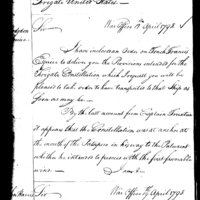 Frigate United States.
War Office 12th April 1798
Sir
I have inclosed an Order on Tench Francis
Esquire to deliver you the Provisions intended for the
Frigate Constellation which I request you will be
pleased to take order to have transported to that Ship as
soon as may be.
By the last account from Captain Truxtun
it appears that the Constellation was at anchor at
the mouth of the Patapsco in his way to the Patuxent
whither he intended to proceed with the first favorable
wind.
I am &c
Sir
War Office April 1798